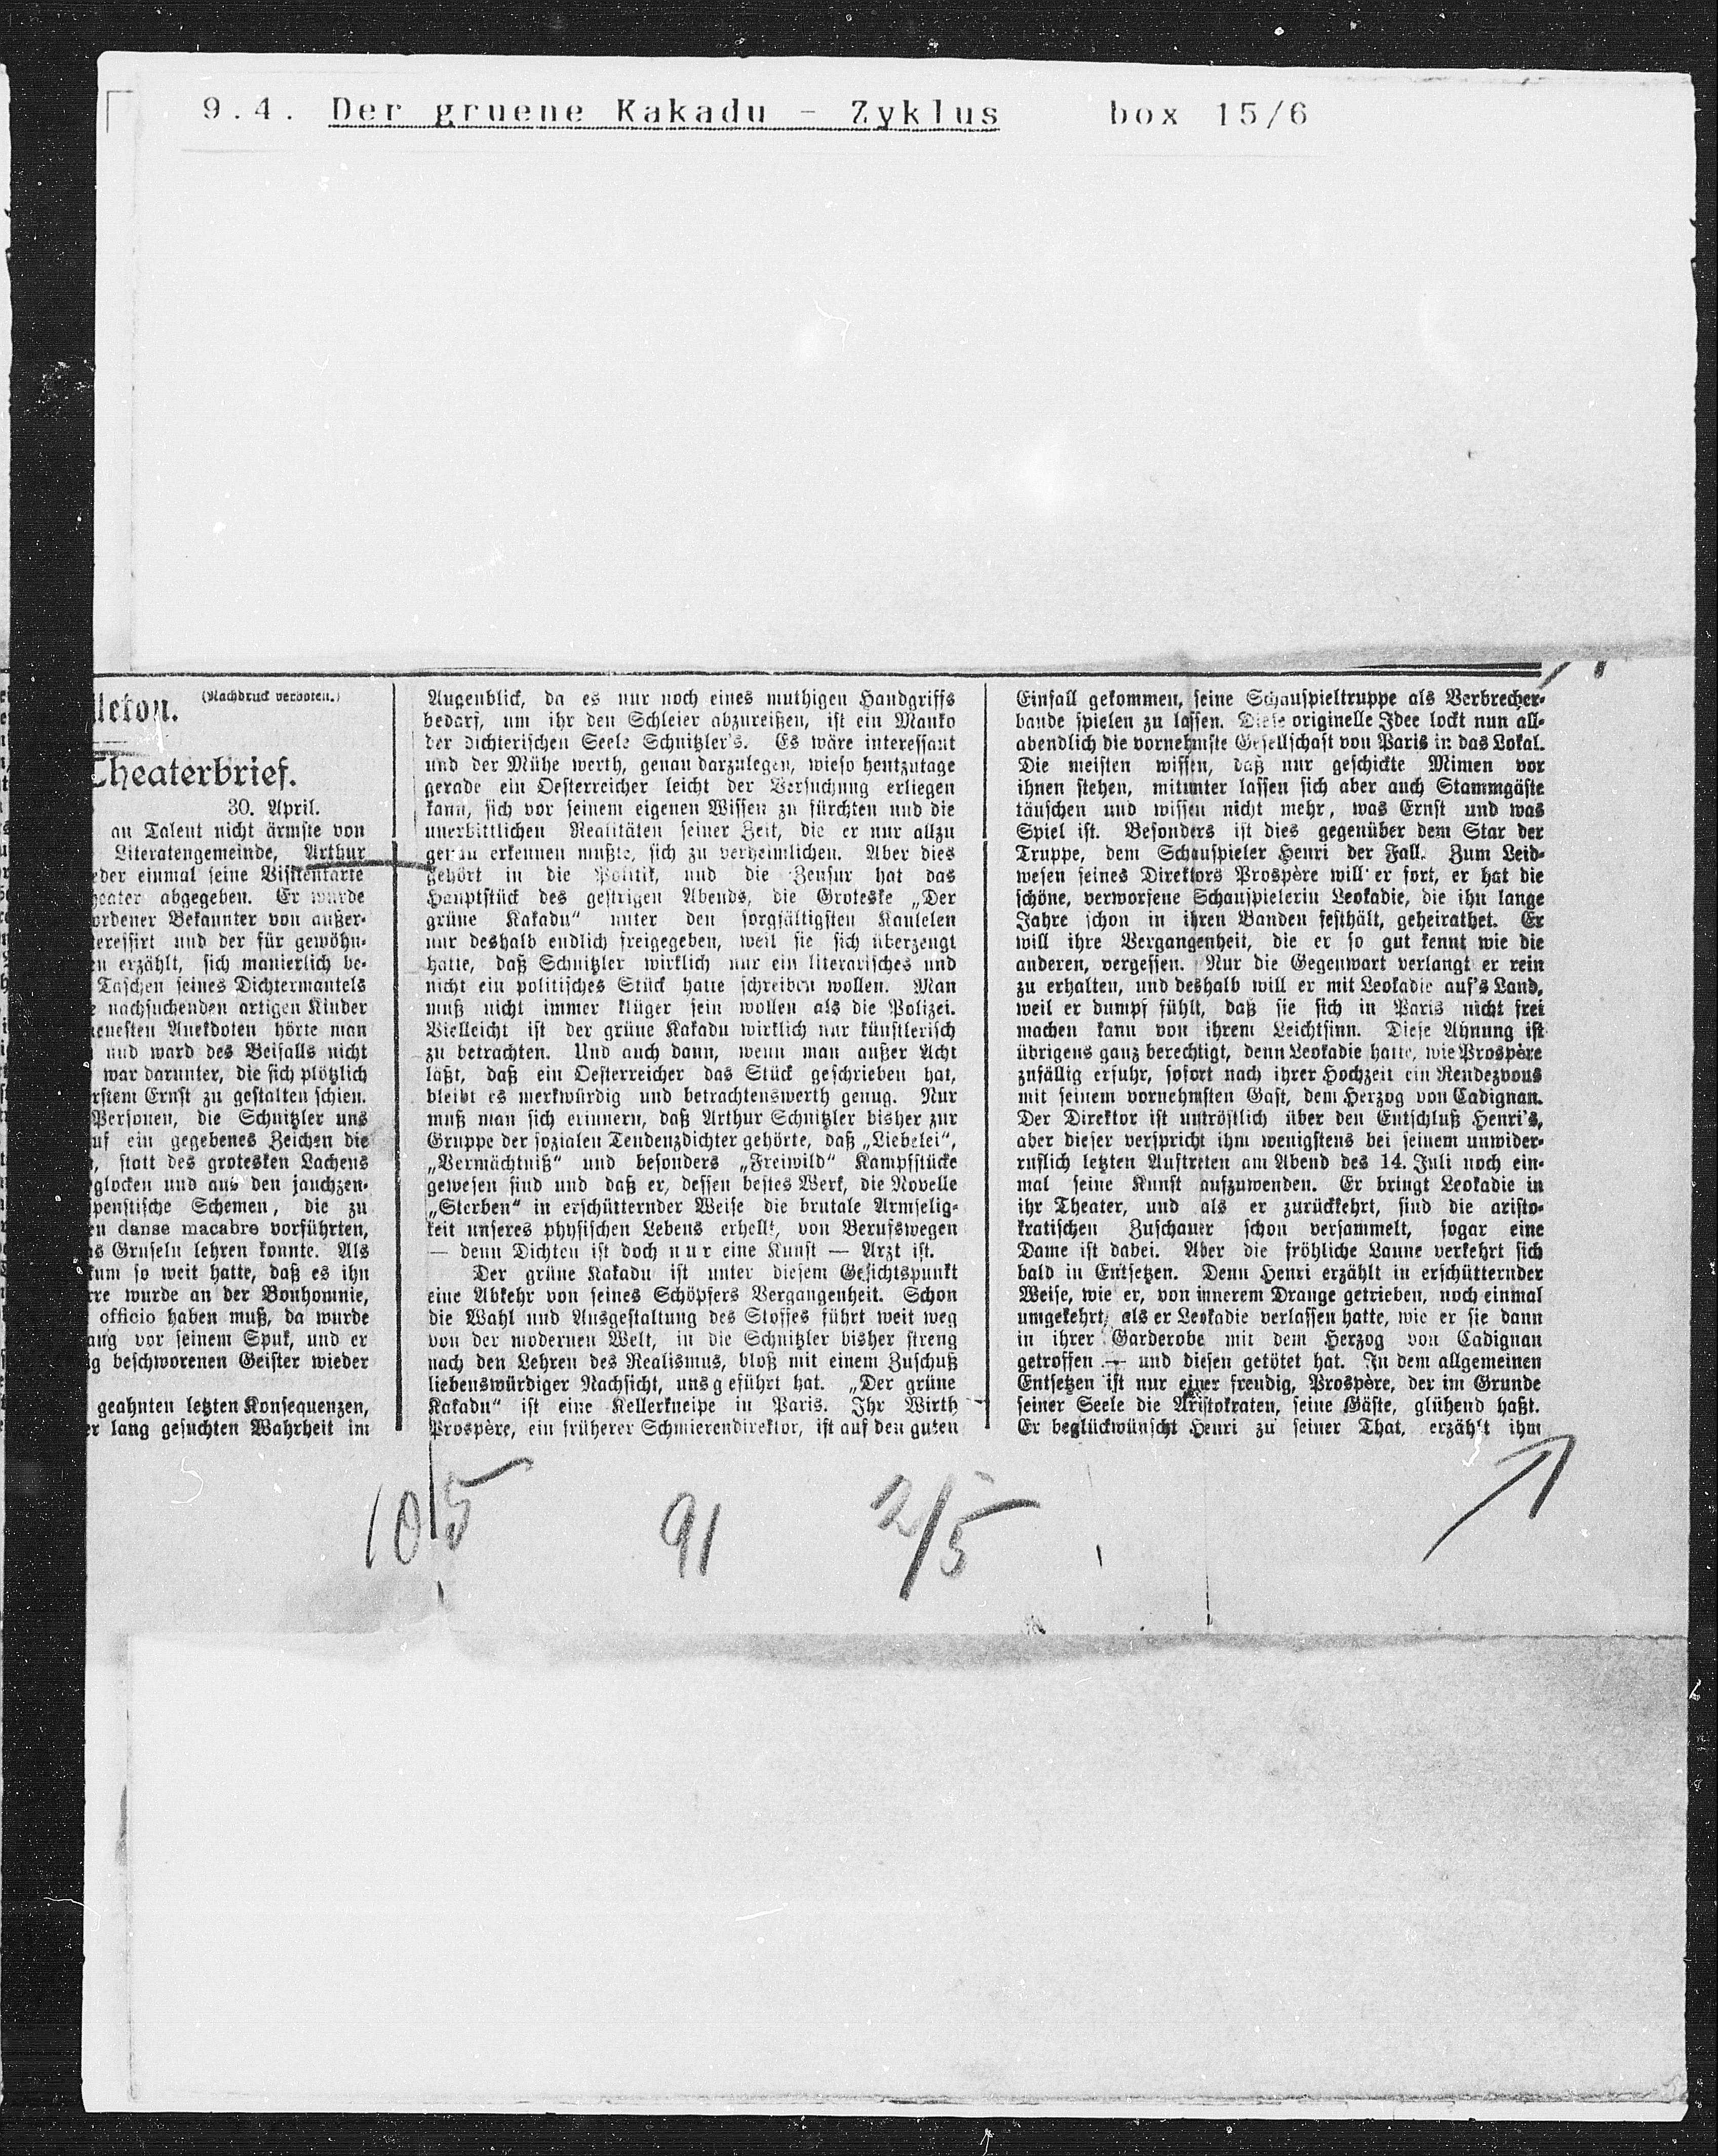 9.4. Der gruene Kakadu – Zyklus box 15/6
lleton.
(Nachdruck verboten.)
Theaterbrief.
30. April.
an Talent nicht ärmste von
Literatengemeinde, Arthur
eder einmal seine Visitenkarte
heater abgegeben. Er wurde
ordener Bekannter von außer-
teressirt und der für gewöhn-
en erzählt, sich manierlich be-
Taschen seines Dichtermantels
e nachsuchenden artigen Kinder
neuesten Anekdoten hörte man
und ward des Beifalls nicht
war darunter, die sich plötzlich
rstem Ernst zu gestalten schien.
Personen, die Schnitzler uns
uf ein gegebenes Zeichen die
, statt des grotesken Lachens
glocken und aus den jauchzen-
penstische Schemen, die zu
en danse macabre vorführten,
as Gruseln lehren konnte. Als
kum so weit hatte, daß es ihn
rre wurde an der Bonhomnie,
officio haben muß, da wurde
ang vor seinem Spuk, und er
g beschworenen Geister wieder
geahnten letzten Konsequenzen,
er lang gesuchten Wahrheit im
Augenblick, da es nur noch eines muthigen Handgriffs
bedarf, um ihr den Schleier abzureißen, ist ein Manko
der dichterischen Seele Schnitzler's. Es wäre interessant
und der Mühe werth, genau darzulegen, wieso heutzutage
gerade ein Oesterreicher leicht der Versuchung erliegen
kann, sich vor seinem eigenen Wissen zu fürchten und die
unerbittlichen Realitäten seiner Zeit, die er nur allzu
genau erkennen mußte, sich zu verheimlichen. Aber dies
gehört in die Politik, und die Zensur hat das
Hauptstück des gestrigen Abends, die Groteske „Der
grüne Kakadu“ unter den sorgfältigsten Kautelen
nur deshalb endlich freigegeben, weil sie sich überzeugt
hatte, daß Schnitzler wirklich nur ein literarisches und
nicht ein politisches Stück hatte schreiben wollen. Man
muß nicht immer klüger sein wollen als die Polizei.
Vielleicht ist der grüne Kakadu wirklich nur künstlerisch
zu betrachten. Und auch dann, wenn man außer Acht
läßt, daß ein Oesterreicher das Stück geschrieben hat,
bleibt es merkwürdig und betrachtenswerth genug. Nur
muß man sich erinnern, daß Arthur Schnitzler bisher zur
Gruppe der sozialen Tendenzdichter gehörte, daß „Liebelei“,
„Vermächtniß“ und besonders „Freiwild“ Kampfstücke
gewesen sind und daß er, dessen bestes Werk, die Novelle
„Sterben“ in erschütternder Weise die brutale Armselig-
keit unseres physischen Lebens erhellt, von Berufswegen
— denn Dichten ist doch nur eine Kunst — Arzt ist.
Der grüne Kakadu ist unter diesem Gesichtspunkt
eine Abkehr von seines Schöpfers Vergangenheit. Schon
die Wahl und Ausgestaltung des Stoffes führt weit weg
von der modernen Welt, in die Schnitzler bisher streng
nach den Lehren des Realismus, bloß mit einem Zuschuß
liebenswürdiger Nachsicht, uns geführt hat. „Der grüne
Kakadu“ ist eine Kellerkneipe in Paris. Ihr Wirth
Prospère, ein früherer Schmierendirektor, ist auf den guten
Einfall gekommen, seine Schauspieltruppe als Verbrecher-
bande spielen zu lassen. Diese originelle Idee lockt nun all-
abendlich die vornehmste Gesellschaft von Paris in das Lokal.
Die meisten wissen, daß nur geschickte Mimen vor
ihnen stehen, mitunter lassen sich aber auch Stammgäste
täuschen und wissen nicht mehr, was Ernst und was
Spiel ist. Besonders ist dies gegenüber dem Star der
Truppe, dem Schauspieler Henri der Fall. Zum Leid-
wesen seines Direktors Prospère will er fort, er hat die
schöne, verworfene Schauspielerin Leokadie, die ihn lange
Jahre schon in ihren Banden festhält, geheirathet. Er
will ihre Vergangenheit, die er so gut kennt wie die
anderen, vergessen. Nur die Gegenwart verlangt er rein
zu erhalten, und deshalb will er mit Leokadie auf's Land,
weil er dumpf fühlt, daß sie sich in Paris nicht frei
machen kann von ihrem Leichtsinn. Diese Ahnung ist
übrigens ganz berechtigt, denn Leokadie hatte, wie Prospère
zufällig erfuhr, sofort nach ihrer Hochzeit ein Rendezvous
mit seinem vornehmsten Gast, dem Herzog von Cadignan.
Der Direktor ist untröstlich über den Entschluß Henri's,
aber dieser verspricht ihm wenigstens bei seinem unwider-
ruflich letzten Auftreten am Abend des 14. Juli noch ein-
mal seine Kunst aufzuwenden. Er bringt Leokadie in
ihr Theater, und als er zurückkehrt, sind die aristo-
kratischen Zuschauer schon versammelt, sogar eine
Dame ist dabei. Aber die fröhliche Laune verkehrt sich
bald in Entsetzen. Denn Henri erzählt in erschütternder
Weise, wie er, von innerem Drange getrieben, noch einmal
umgekehrt, als er Leokadie verlassen hatte, wie er sie dann
in ihrer Garderobe mit dem Herzog von Cadignan
getroffen — und diesen getötet hat. In dem allgemeinen
Entsetzen ist nur einer freudig, Prospère, der im Grunde
seiner Seele die Aristokraten, seine Gäste, glühend haßt.
Er beglückwünscht Henri zu seiner That, erzählt ihm
10/5 91 2/5